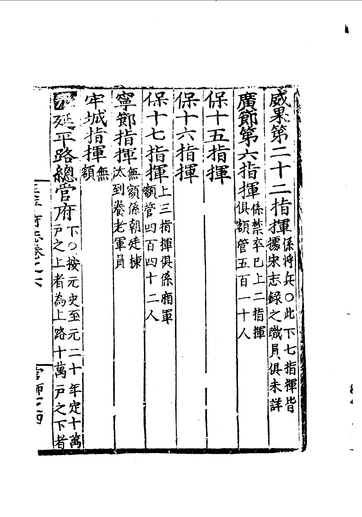 威果第二十二指揮係將兵○此下七指揮皆
據宋志錄之職員俱未詳
廣節第六指揮係禁卒已上二指揮
俱額管五百一十人
保十五指揮
保十六指揮
保十七指揮上三指揮俱係廂軍
額管四百四十二人
寧節指揮無額係朝廷揀
汰到養老軍員
牢城指揮無
額
延平路總管府下○按元史至元二十年定十萬
戶之上者為上路十萬戶之下者